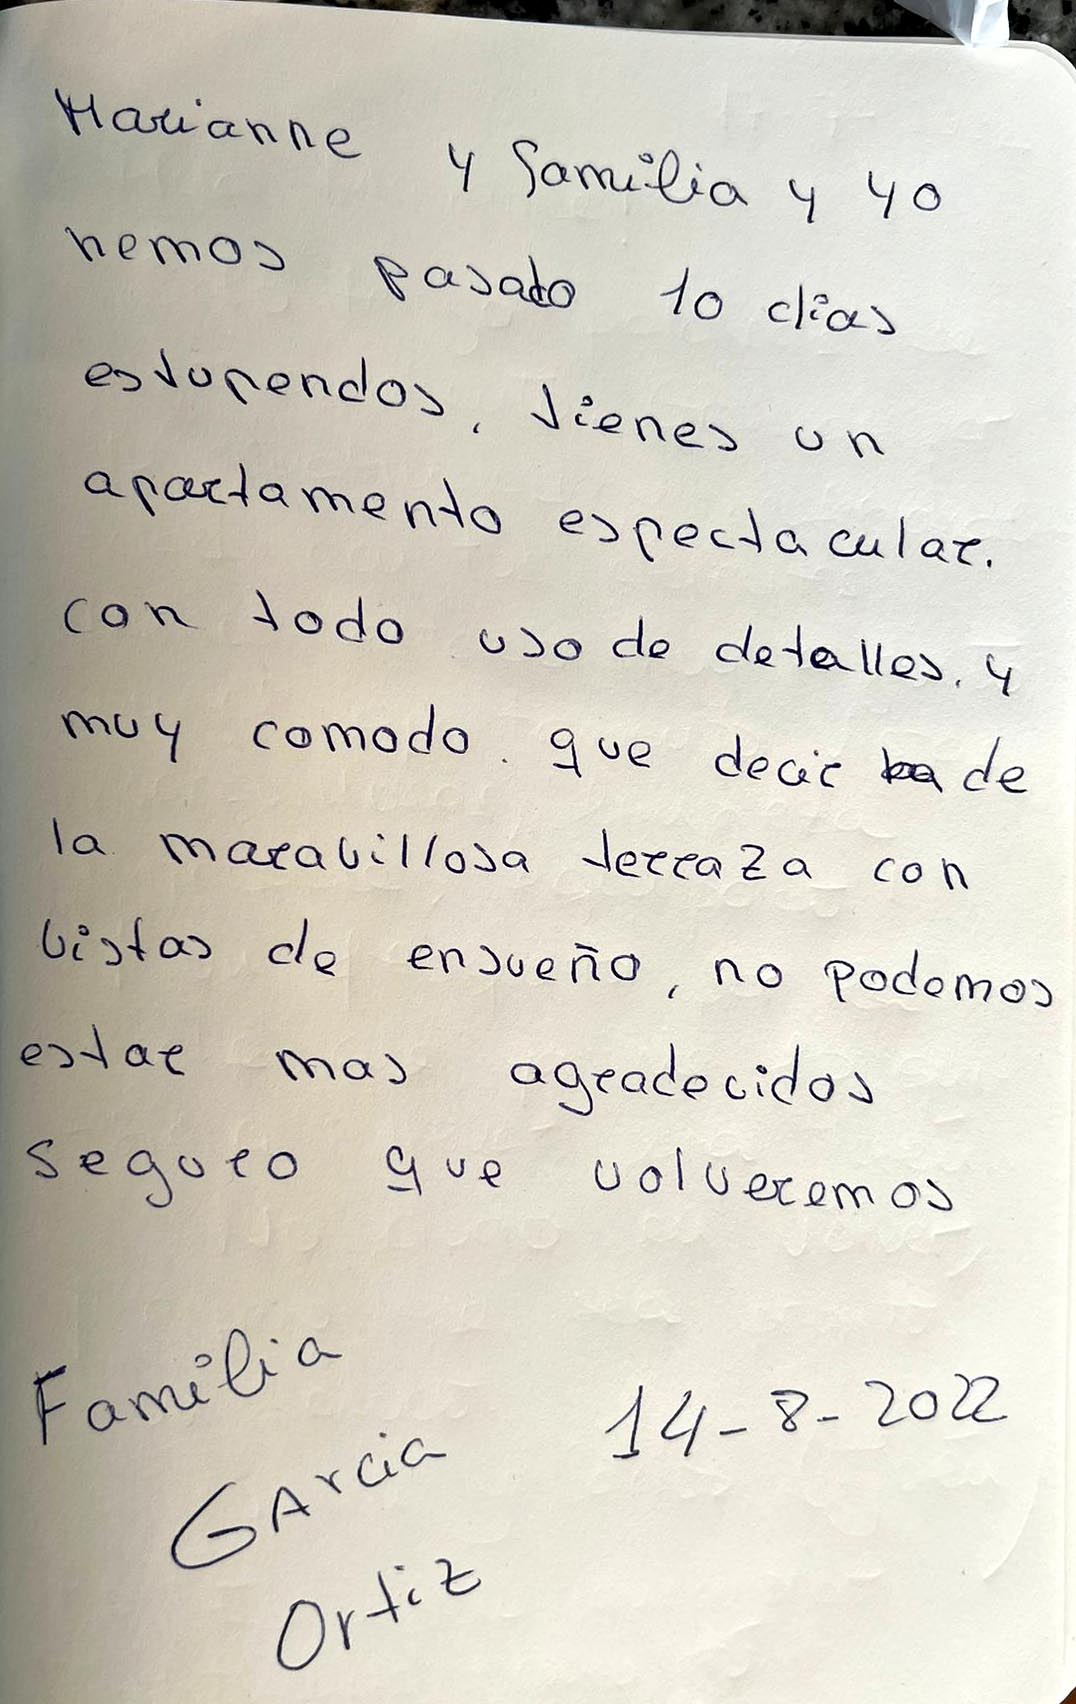 Marianne y familia y yo
hemos pasado 10 dias
estupendos, tienes un
apartamento espectacular.
con todo uso de detalles. y
muy comodo. que decir de
la maravillosa terraza con
vistas de ensueño, no podemos
estar mas agradecidos
seguro que volveremos
Familia
Garcia
14-8-2022
Ortiz